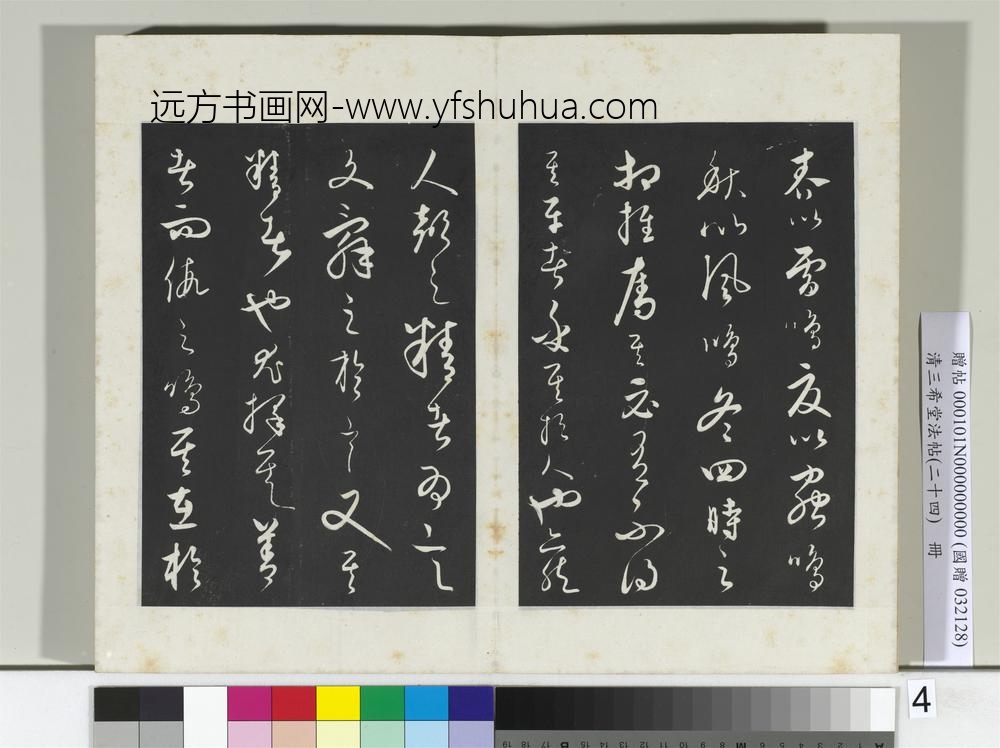 远方书画网-www.yfshuhua.com
春以雷鳴夏以蟲鳴
秋以風鳴冬四時之
相推奪其必有不得
其平者乎其於人也亦然
人聲之精者為言
文辭之於言又其
精者也尤擇其善
者而假之鳴其在於
贈帖 000101N000000000 (國贈 032128)
清三希堂法帖(二十四) 冊
4